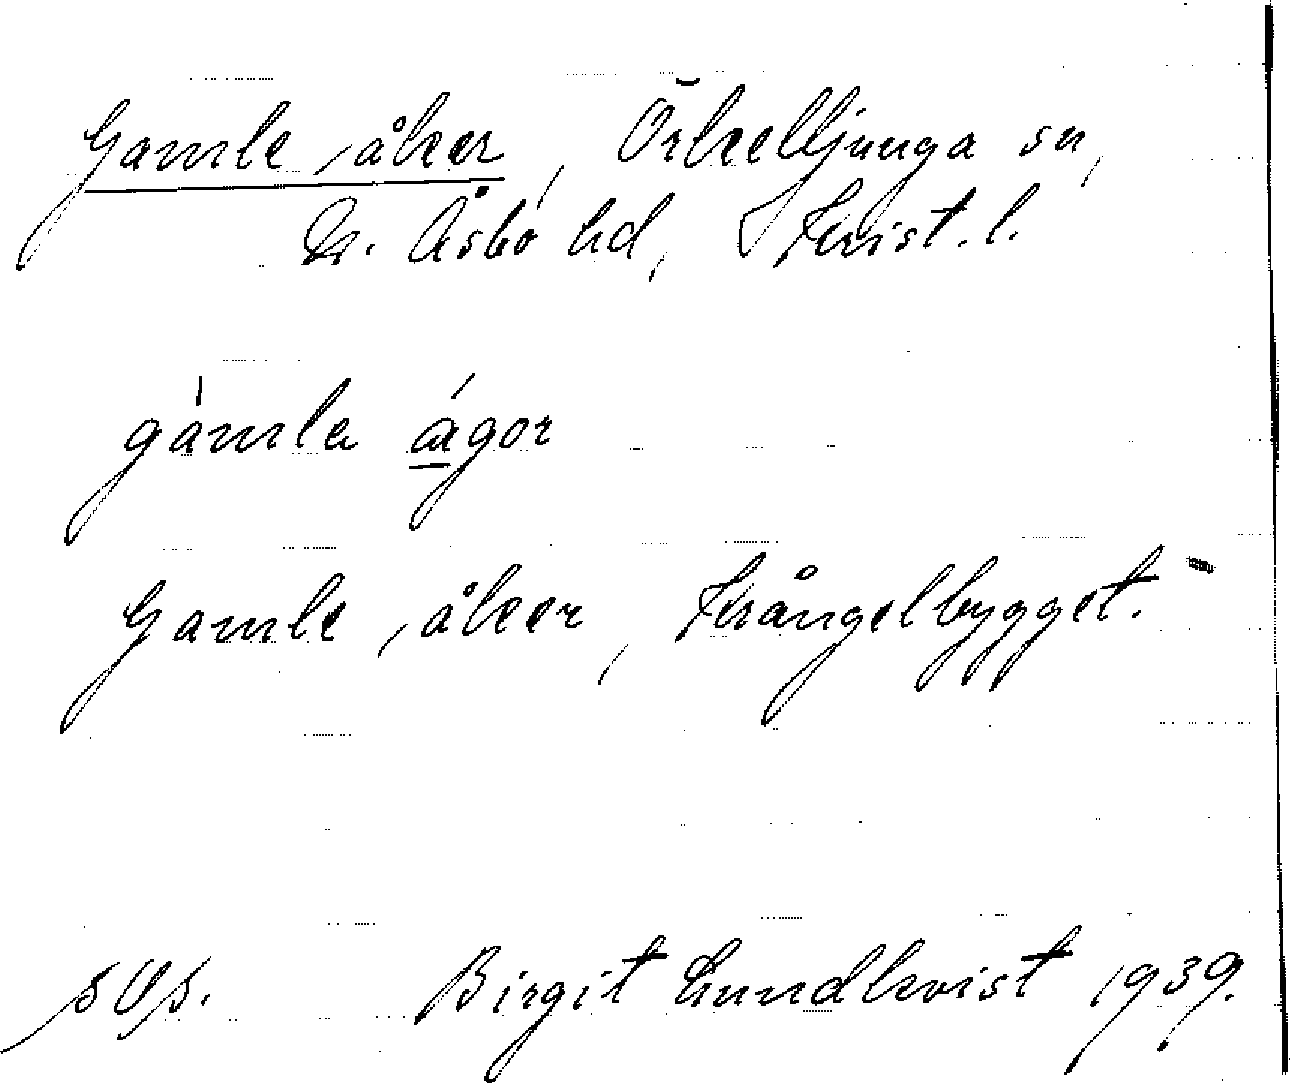 Gamle,åker, Örkelljunga sn,
N. Åsbo hd, Krist. l.
gámla ágor
Gamle,åker, Krångelbygget.
Birgit Lundkvist 1939.